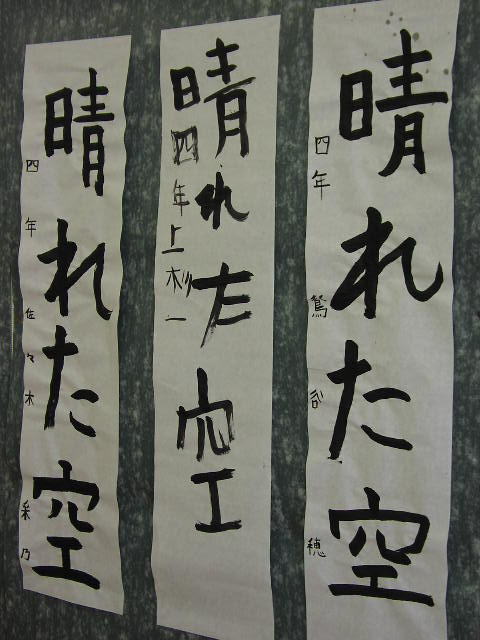 晴れた空
四年 穂
晴れた空
四年上杉一
晴れた空
四年 佐々木 采乃